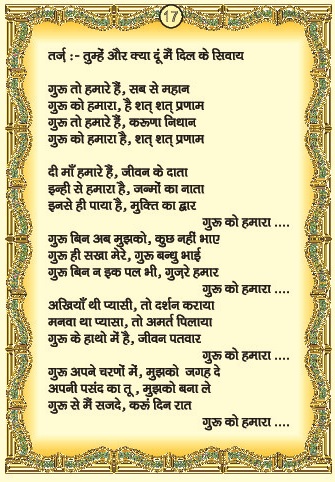 17
तर्ज़ :- तुम्हें और क्या दूं मैं दिल के सिवाय
गुरू तो हमारे हैं, सब से महान
गुरू को हमारा, है शत् शत् प्रणाम
गुरू तो हमारे हैं, करूणा निधान
गुरू को हमारा है, शत् शत् प्रणाम
दी माँ हमारे हैं, जीवन के दाता
इन्ही से हमारा है, जन्मों का नाता
इनसे ही पाया है, मुक्ति का द्वार
गुरू को हमारा ....
गुरू बिन अब मुझको, कुछ नहीं भाए
गुरू ही सखा मेरे, गुरू बन्धु भाई
गुरू बिन न इक पल भी, गुज़रे हमार
गुरू को हमारा ....
अखियाँ थी प्यासी, तो दर्शन कराया
मनवा था प्यासा, तो अमर्त पिलाया
गुरू के हाथो में है, जीवन पतवार
गुरू को हमारा ....
गुरू अपने चरणों में, मुझको जगह दे
अपनी पसंद का तू , मुझको बना ले
गुरू से मैं सजदे, करूं दिन रात
गुरू को हमारा ....